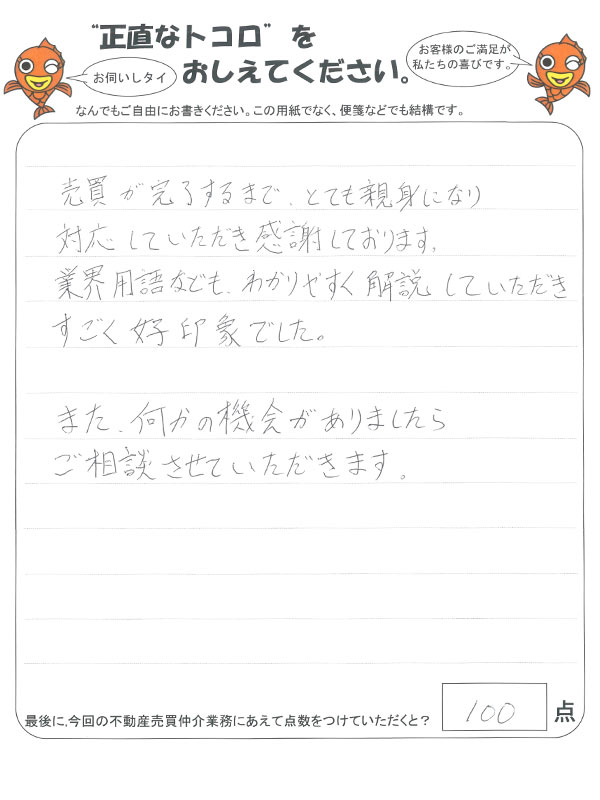 “正直なトコロ”を
おしえてください。
お伺いしタイ
お客様のご満足が
私たちの喜びです。
なんでもご自由にお書きください。この用紙でなく、便箋などでも結構です。
売買が完了するまで、とても親身になり
対応していただき感謝しております。
業界用語なども、わかりやすく解説していただき
すごく好印象でした。
また、何かの機会がありましたら
ご相談させていただきます。
最後に、今回の不動産売買仲介業務にあえて点数をつけていただくと?
100 点